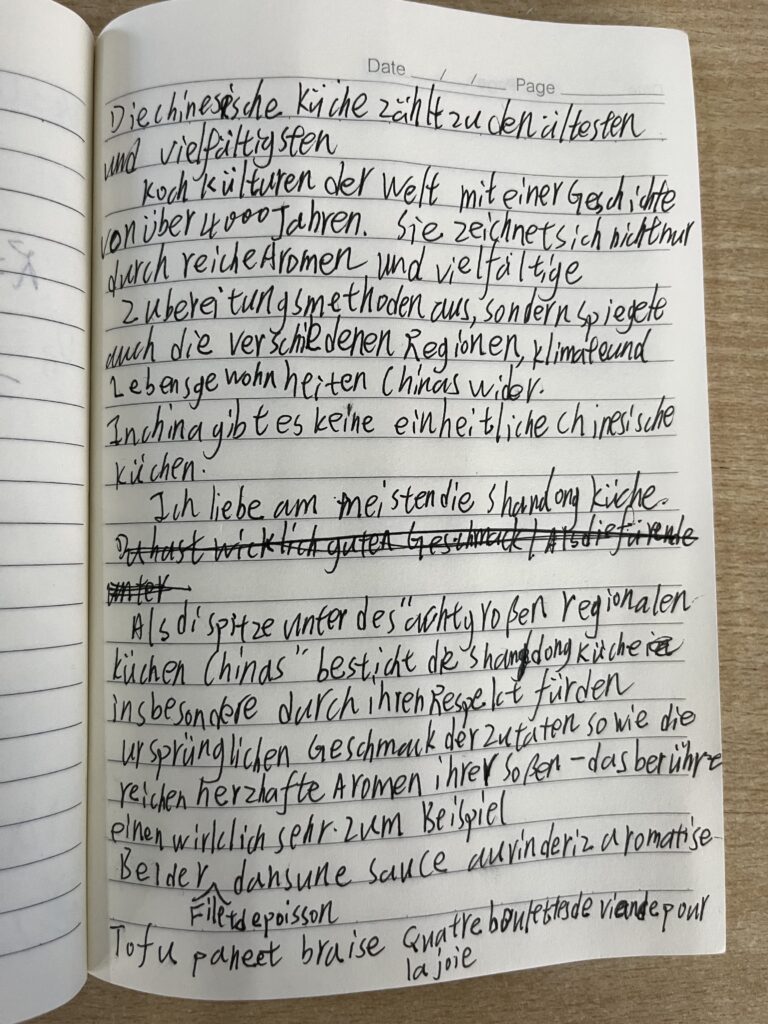 Date __/__/__ Page ______
Die chinesische Küche zählt zu den ältesten
und vielfältigsten
Koch külturen der Welt mit einer Geschichte
von über 4000 Jahren. Sie zeichnets sich nicht nur
durch reiche Aromen und vielfältige
Zubereitungsmethoden aus, sondern spiegete
auch die verschiedenen Regionen, klimate und
Lebensgewohnheiten Chinas wider.
In china gibt es keine einheitliche chinesische
küchen.
Ich liebe am meisten die shandong küche.
Du hast wicklich guten Geschmack! Als die fürende
unter
Als di spitze unter des "acht großen regionalen
küchen Chinas" besticht die shandong küche
insbesondere durch ihren Respekt für den
ursprünglichen Geschmack der zutaten sowie die
reichen herzhafte Aromen ihrer soßen - das berühre
einen wirklich sehr. zum Beispiel
Beider dansune sauce aromatise
Filet de poisson
Tofu paneet braise Quatre boulettes de viande pour
la joie